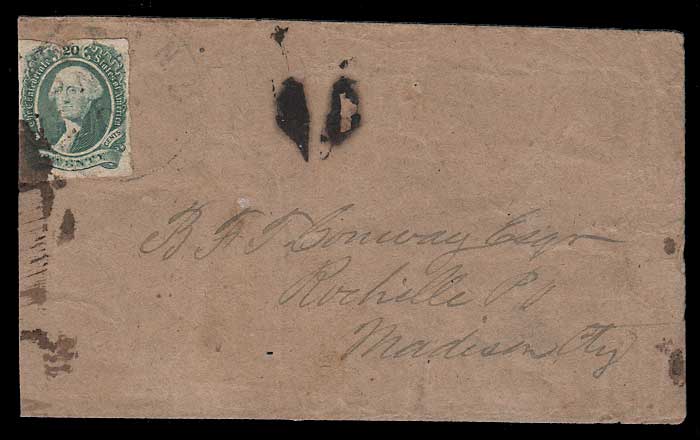 20
The Confederate States of America
CENTS
TWENTY
B F T Conway Esqr
Rochelle P O
Madison Cty